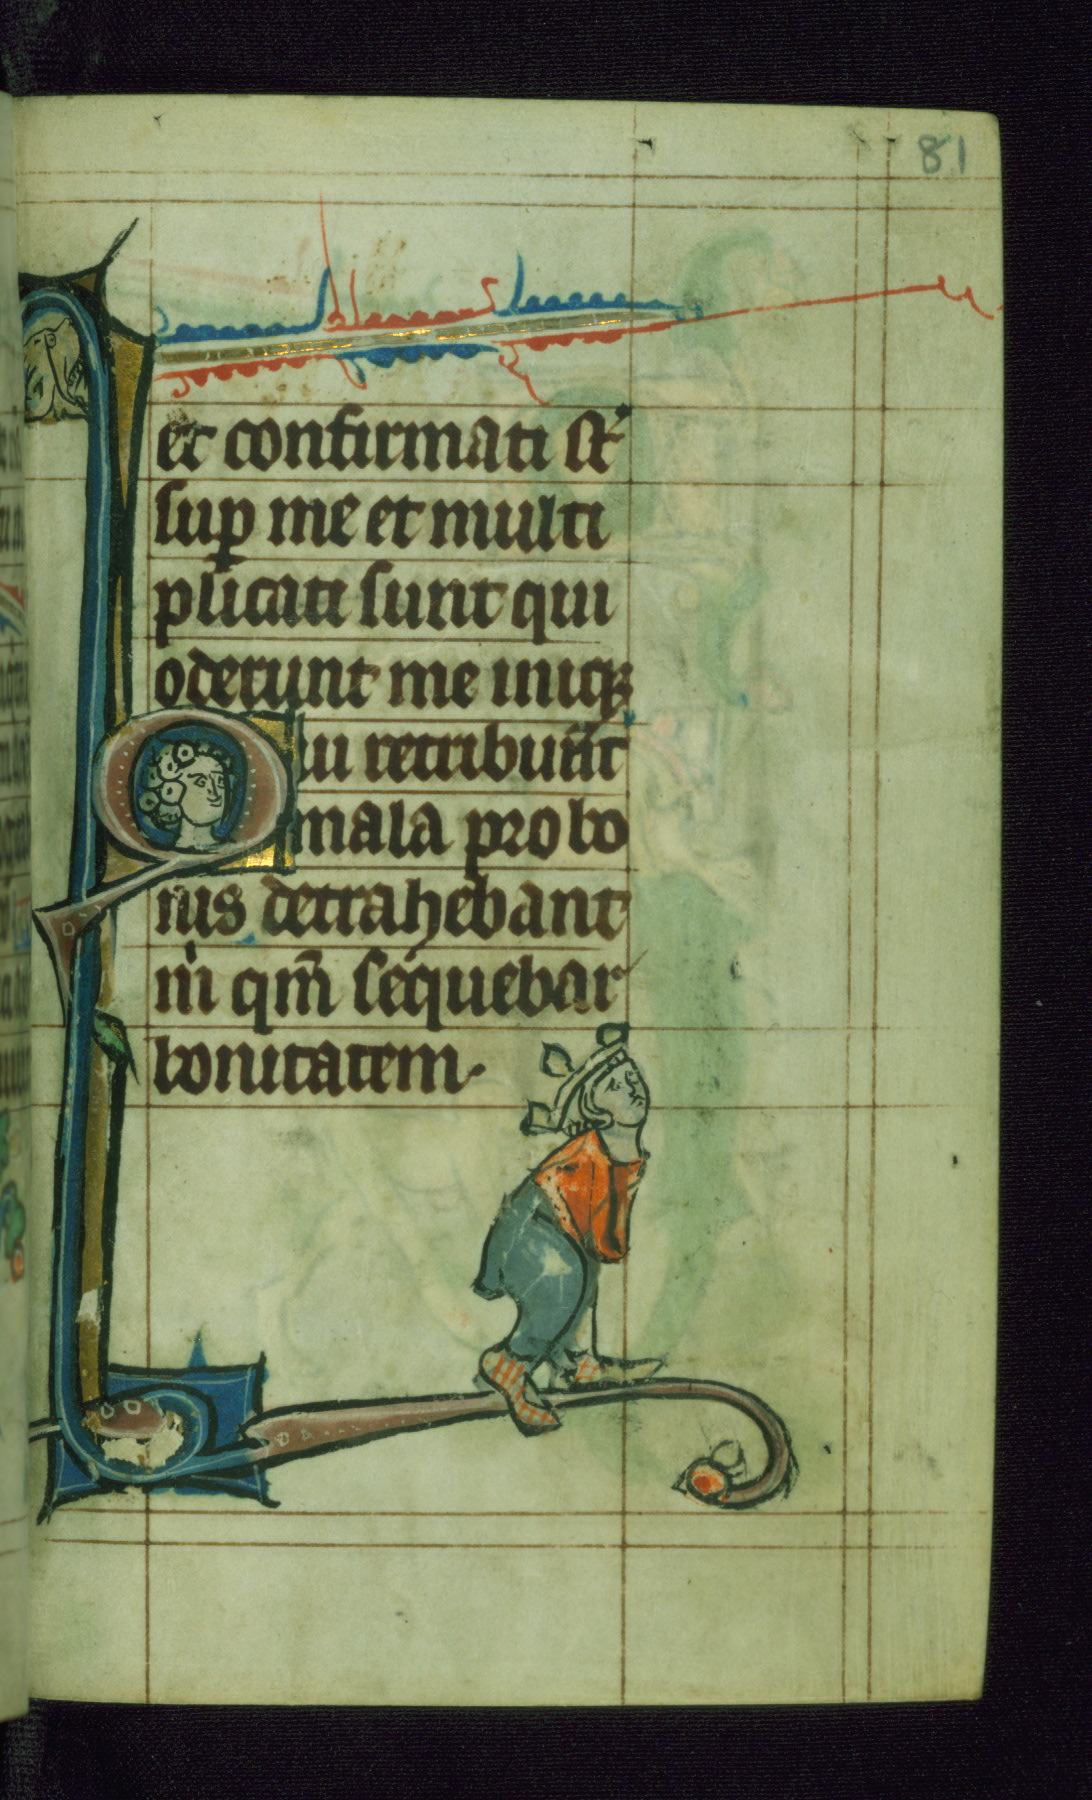 81
et confirmati st̄
sup̲ me et multi
plicati sunt qui
oderunt me iniq̢
Qui retribuūt
mala pro bo
nis detrahebant
m̍ qm̄ sequebar
bonitatem·